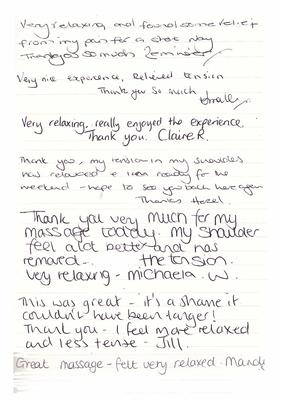 Very relaxing and found some relief
from my pain for a short day
Thankyou so much
Very nice experience, Relieved tension
Thank you so much
Very relaxing, really enjoyed the experience.
Thank you. Claire R.
Thank you, my tension in my shoulders
has relaxed & I am ready for the
weekend - hope to see you back here again
Thanks Hazel.
Thank you very much for my
massage today. my shoulder
feel a lot better and has
removed.. the tension.
very relaxing - michaela. W.
This was great - it's a shame it
couldn't have been longer!
Thank you - I feel more relaxed
and less tense - Jill.
Great massage - felt very relaxed - Mandy